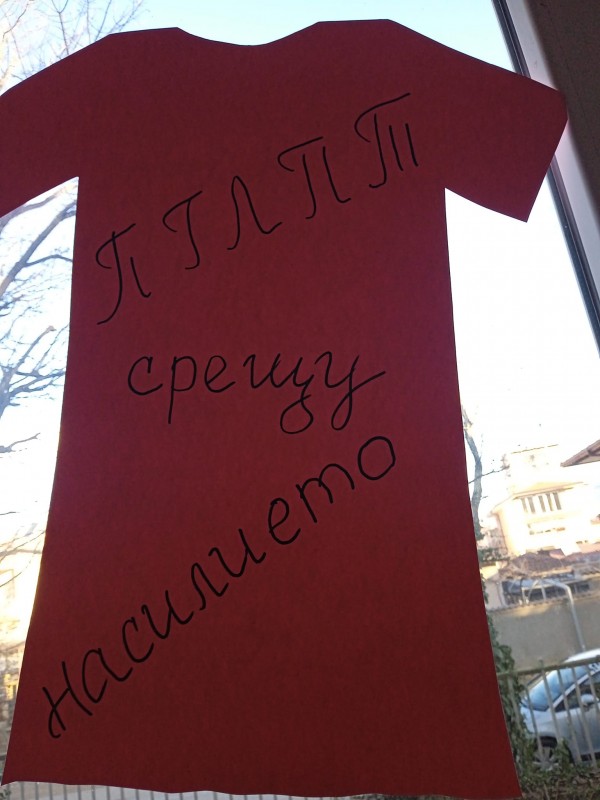 ПГЛПТ
срещу
насилието